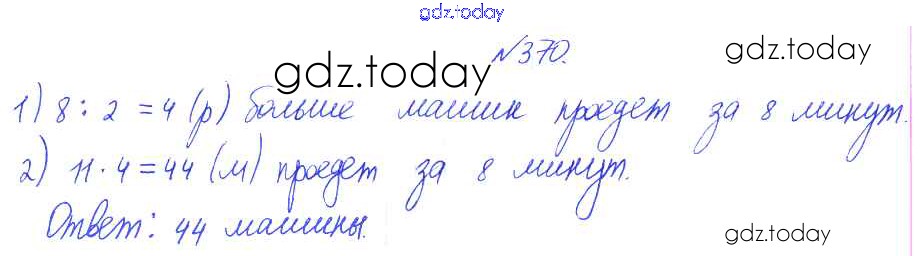 gdz.today
№370.
gdz.today
gdz.today
1) 8 : 2 = 4 (р) больше машин проедет за 8 минут.
2) 11 · 4 = 44 (м) проедет за 8 минут.
Ответ: 44 машины.
gdz.today